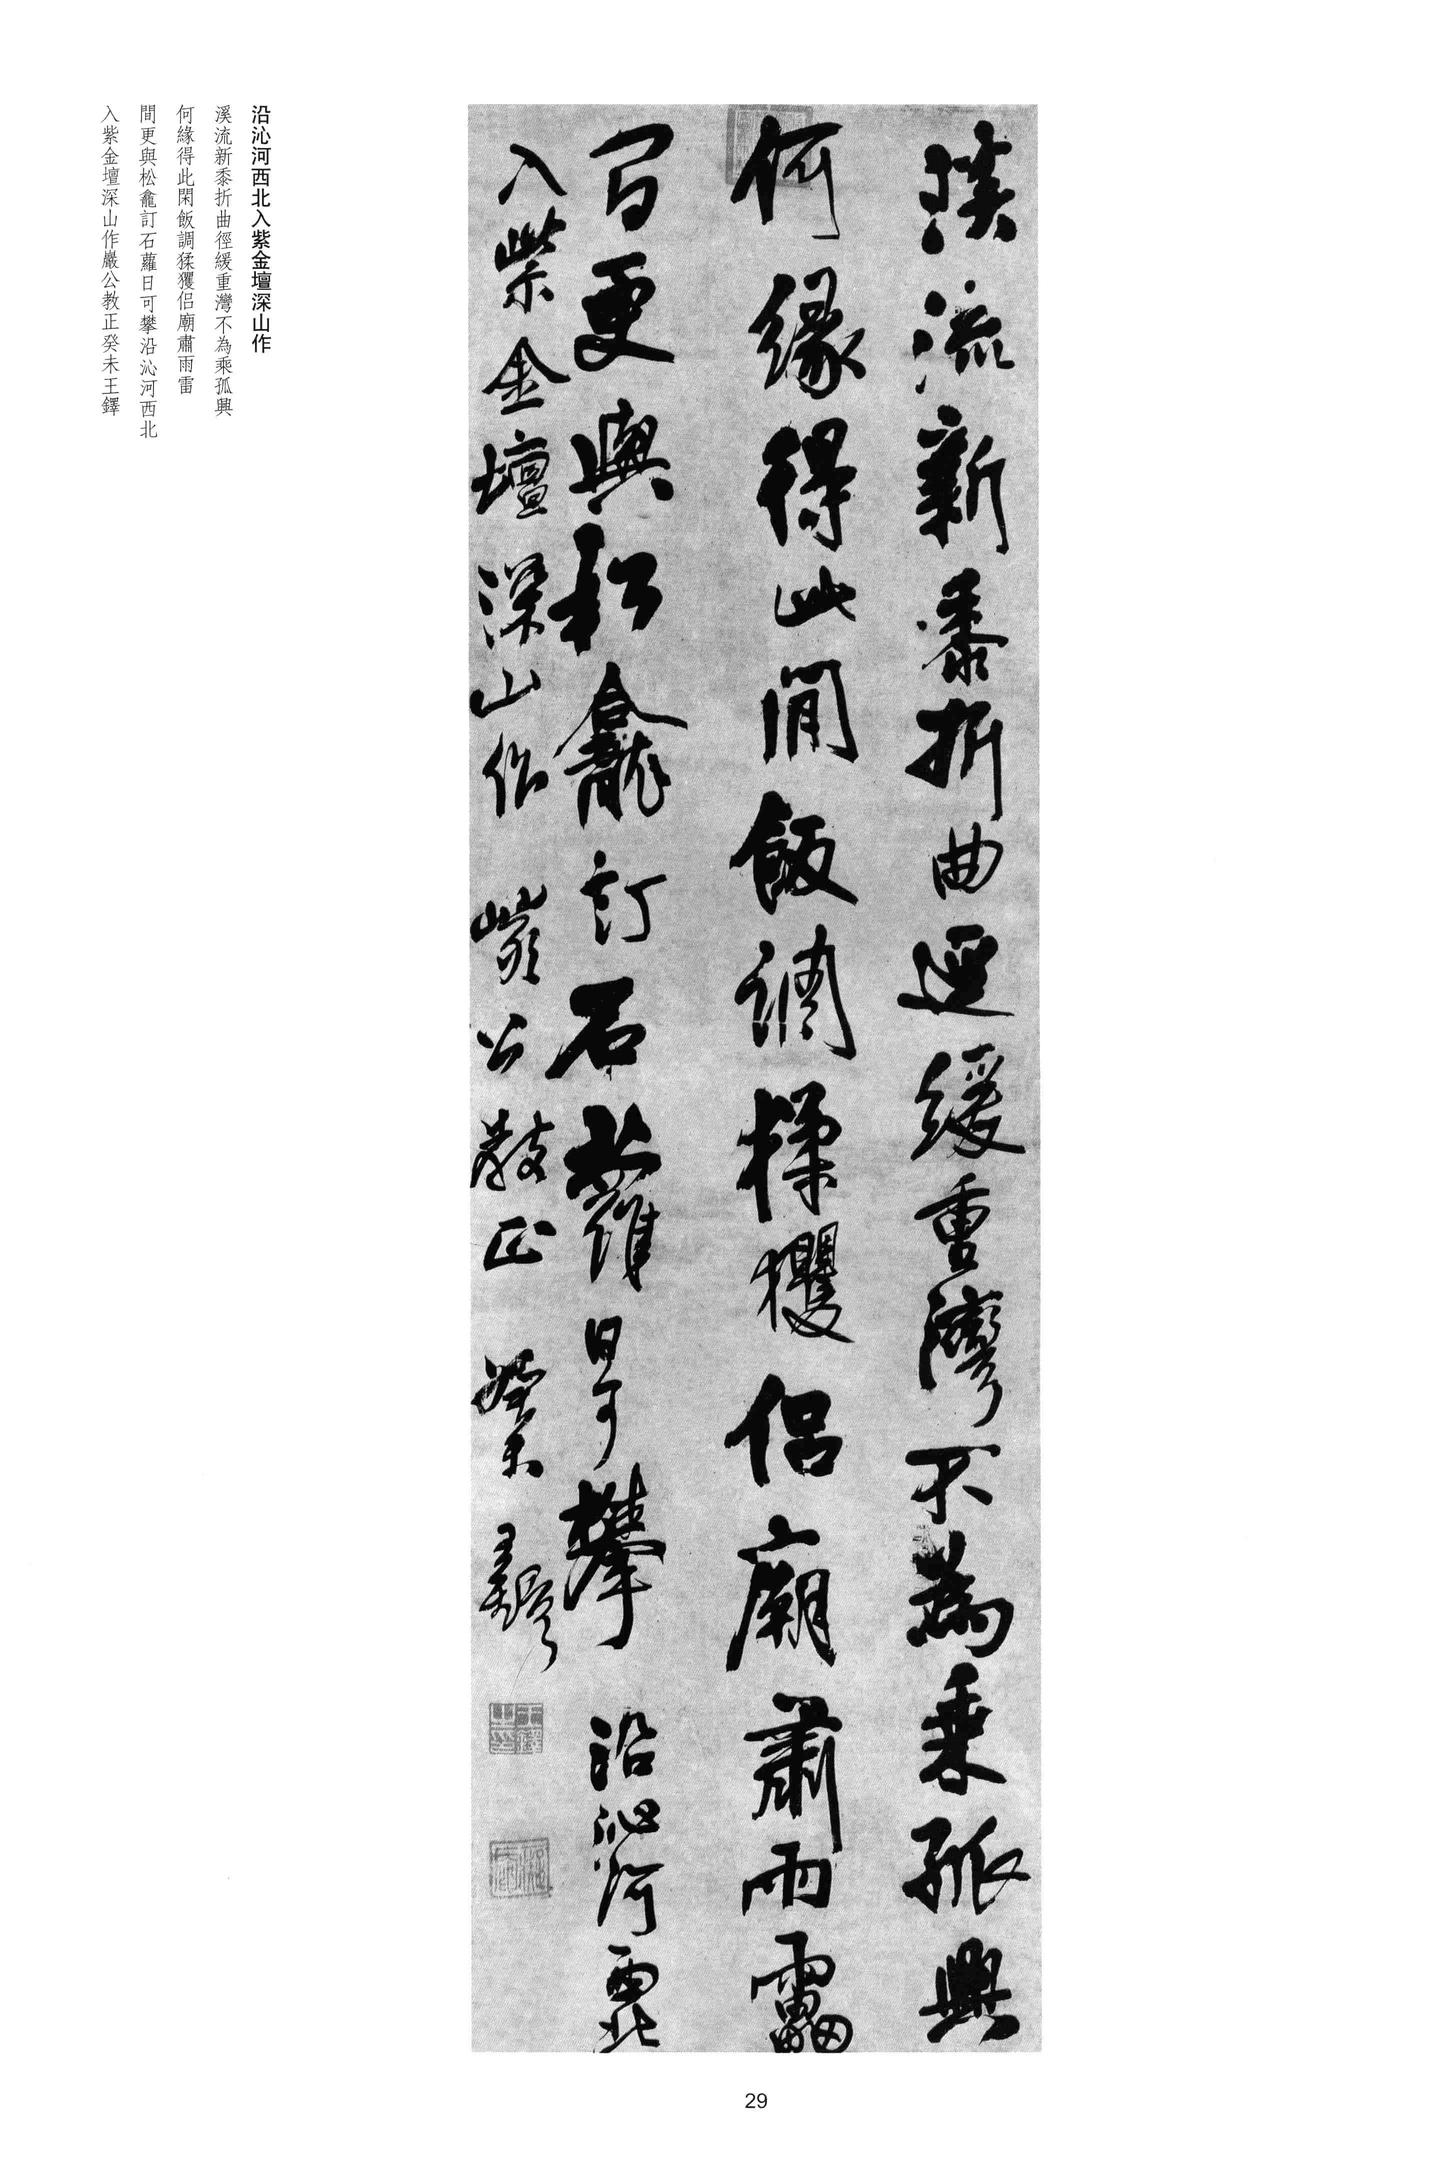 沿沁河西北入紫金壇深山作
溪流新黍折曲徑緩重灣不為乘孤興
何緣得此閑飯調猱玃侶廟肅雨雷
間更與松龕訂石蘿日可攀沿沁河西北
入紫金壇深山作巖公教正癸未王鐸
溪流新黍折曲逕緩重灣不為乘孤興
何緣得此閒飯調猱玃侶廟肅雨雷
間更與松龕訂石蘿日可攀 沿沁河西北
入紫金壇深山作 巖公教正 癸未王鐸
王鐸之印
29